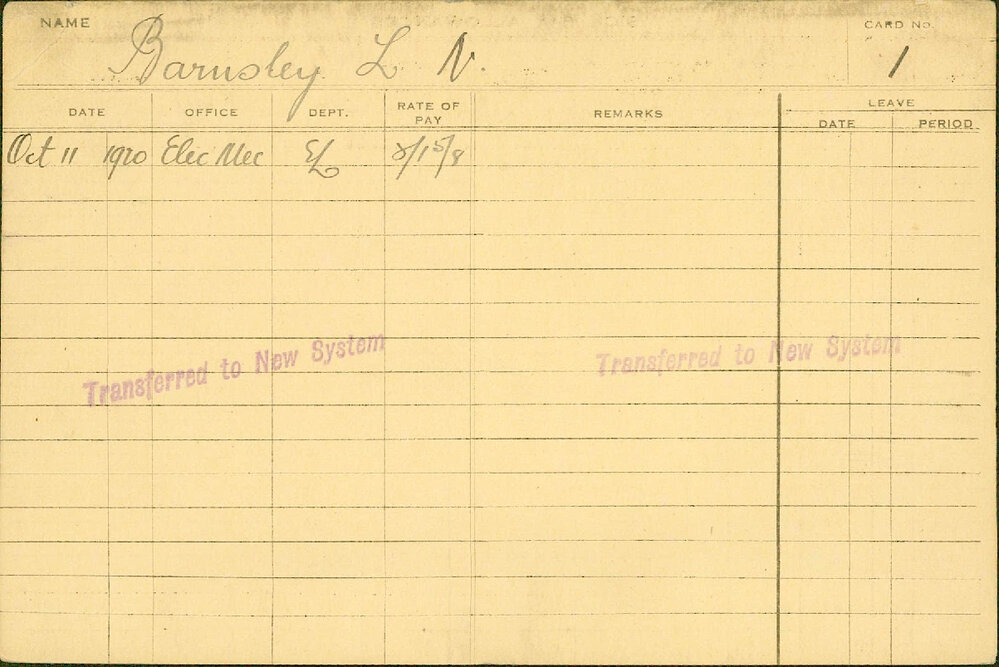 NAME
CARD No.
Barnsley L N.
1
DATE OFFICE DEPT. RATE OF PAY REMARKS LEAVE
DATE PERIOD
Oct 11 1920 Elec Mec EL
Transferred to New System
Transferred to New System